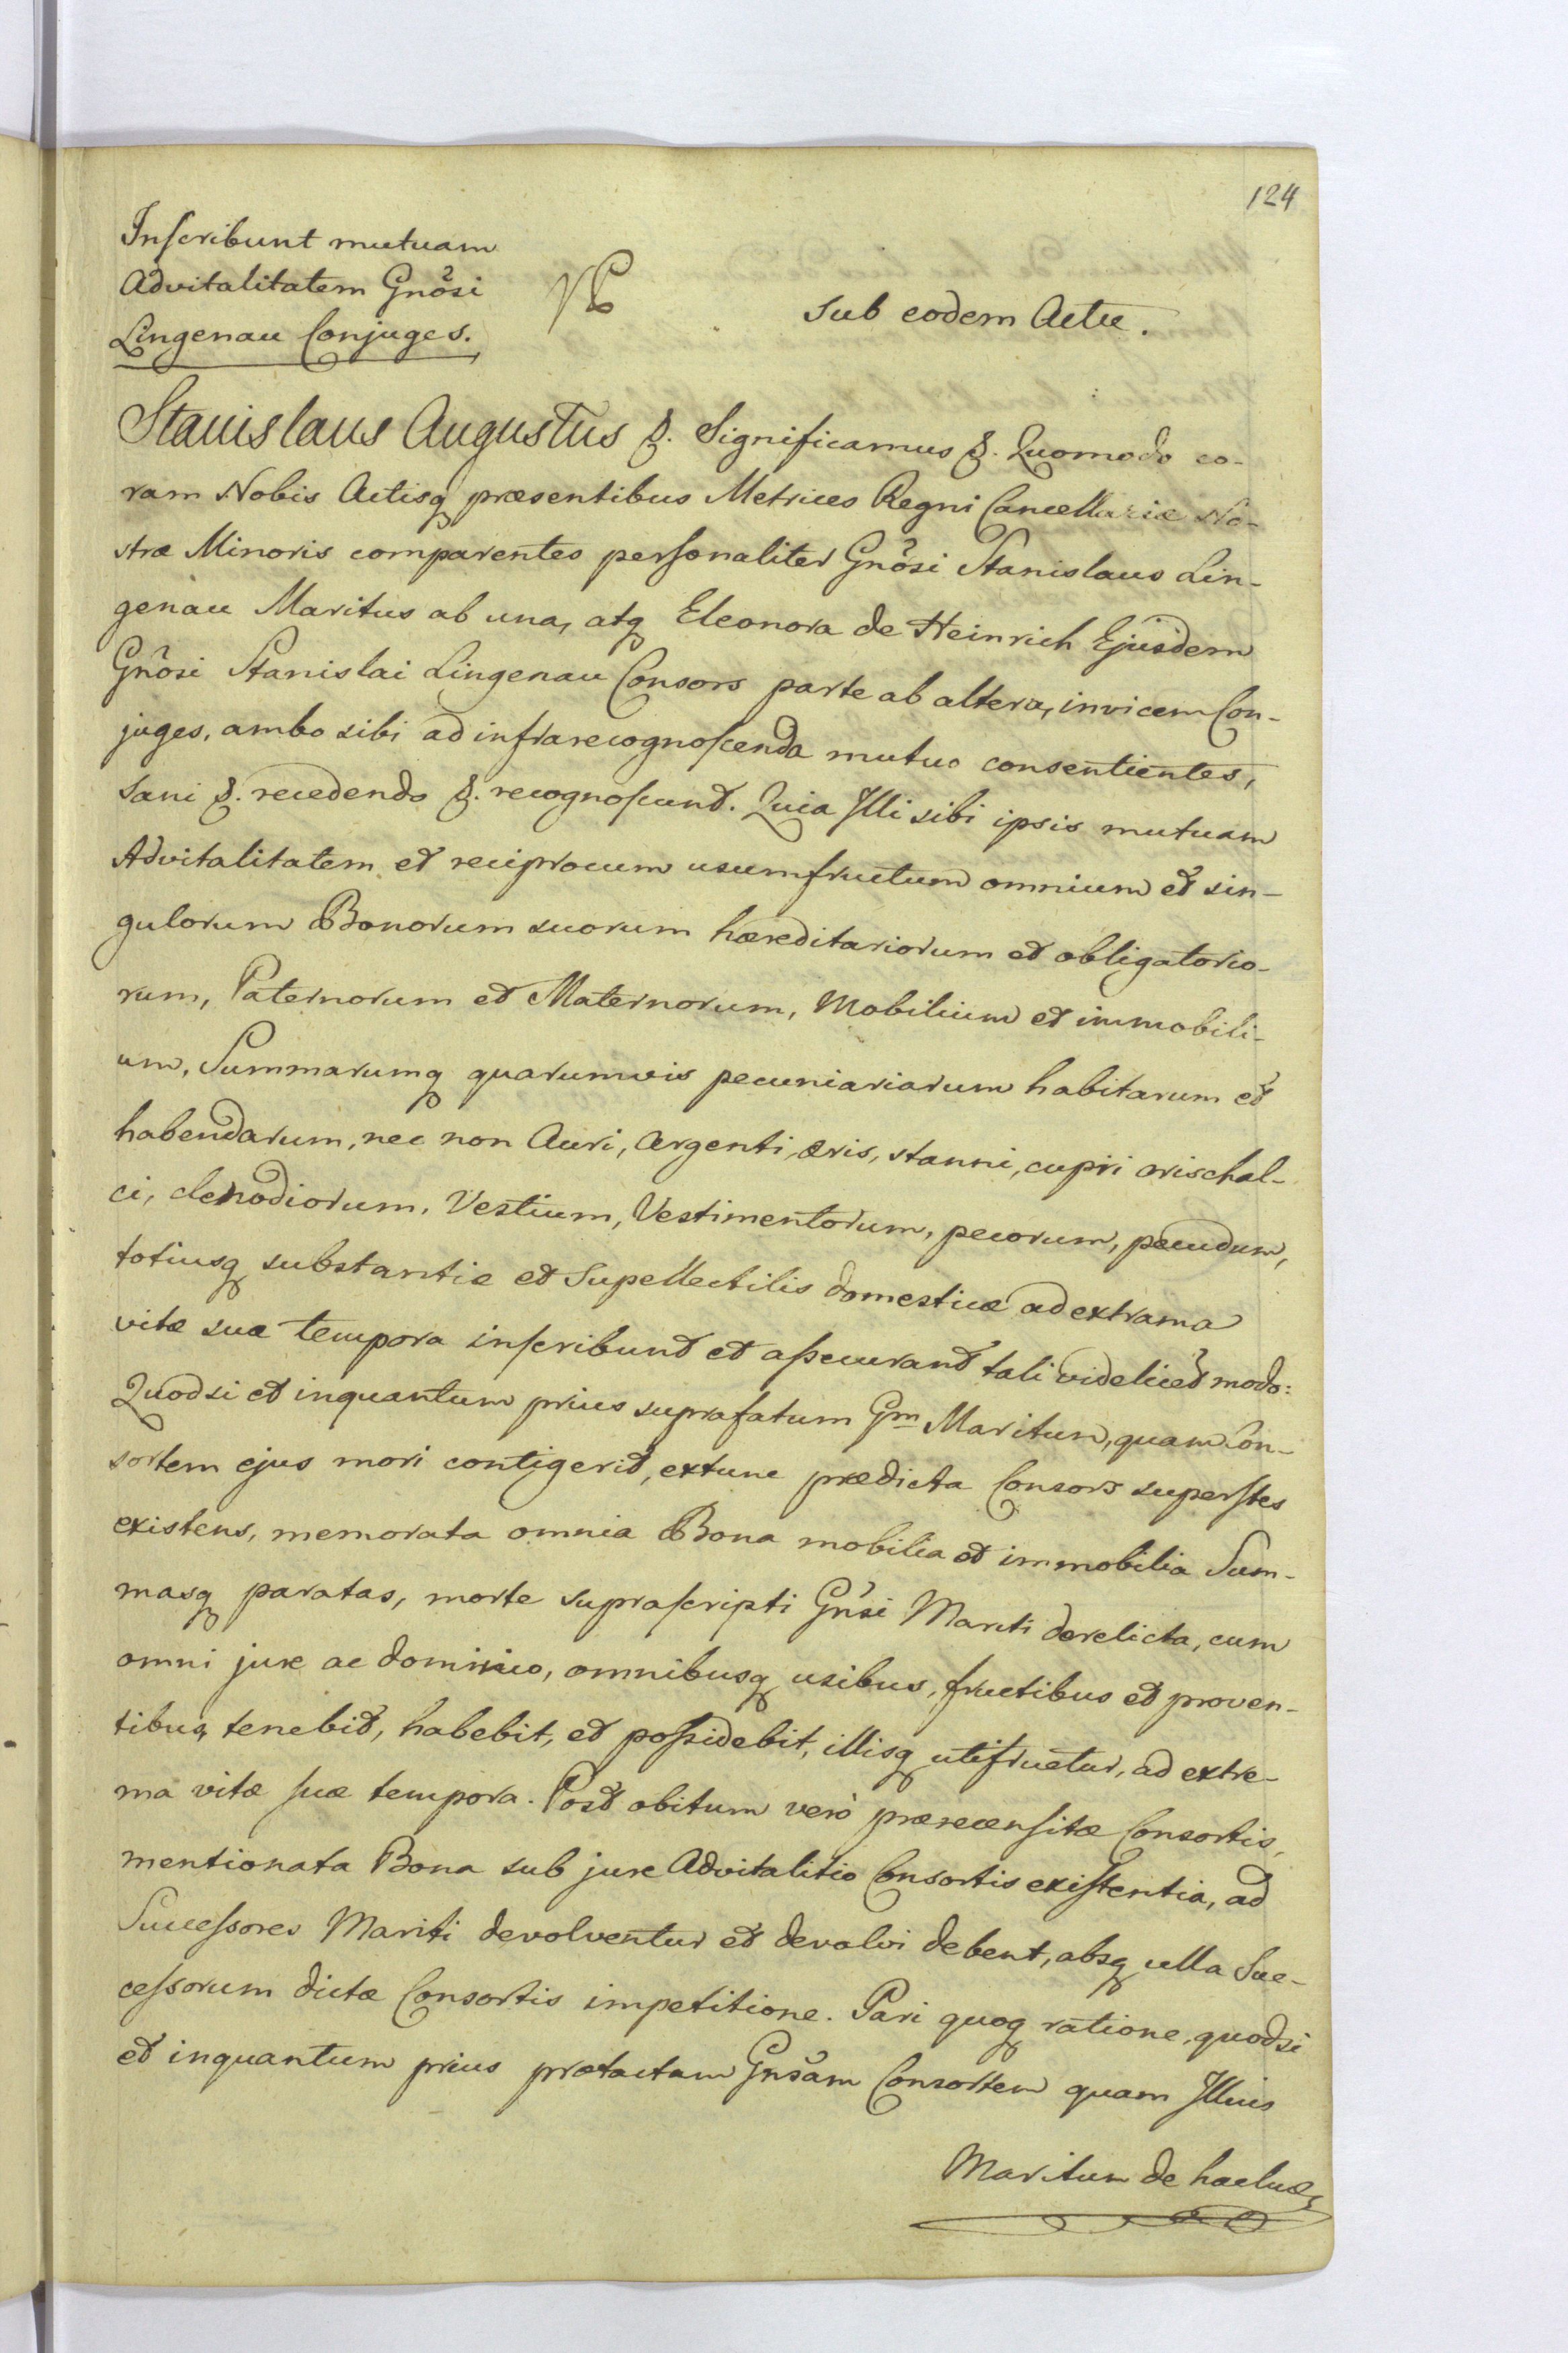 124
Inscribunt mutuam
Advitalitatem Gnosi
Lingenau Conjuges.
Sub eodem Actu.
Stanislaus Augustus &. Significamus &. Quomodo co-
ram Nobis Actisq præsentibus Metrices Regni Cancellariæ No-
stræ Minoris comparentes personaliter Gnosi Stanislaus Lin-
genau Maritus ab una, atq Eleonora de Heinrich Ejusdem
Gnosi Stanislai Lingenau Consors parte ab altera, invicem Con-
juges, ambo sibi ad infrarecognoscenda mutuo consentientes,
Sani &. recedendo &. recognoscunt. Quia Illi sibi ipsis mutuam
Advitalitatem et reciprocum usumfructum omnium et sin-
gulorum Bonorum suorum hæreditariorum et obligatorio-
rum, Paternorum et Maternorum, Mobilium et immobili-
um, Summarumq quarumvis pecuniariarum habitarum et
habendarum, nec non Auri, Argenti, æris, stanni, cupri orischal-
ci, clenodiorum, Vestium, Vestimentorum, pecorum, pecudum,
totiusq substantiæ et Supellectilis domesticæ ad extrama
vitæ suæ tempora inscribunt et assecurant tali videlicet modo:
Quodsi et inquantum prius suprafatum Gm Maritum, quam Con-
sortem ejus mori contigerit, extunc prædicta Consors superstes
existens, memorata omnia Bona mobilia et immobilia Sum-
masq paratas, morte suprascripti Gnsi Mariti derelicta, cum
omni jure ac dominio, omnibusq usibus, fructibus et proven-
tibus, tenebit, habebit, et possidebit, illisq utifruetur, ad extre-
ma vitæ suæ tempora. Post obitum verò præcensitæ Consortis,
mentionata Bona sub jure Advitalitio Consortis existentia, ad
Successores Mariti devolventur et devolvi debent, absq ulla Suc-
cessorum dictæ Consortis impetitione. Pari quoq ratione, quodsi
et inquantum prius prætactam Gnsam Consortem quam Illius
Maritum de hacluce